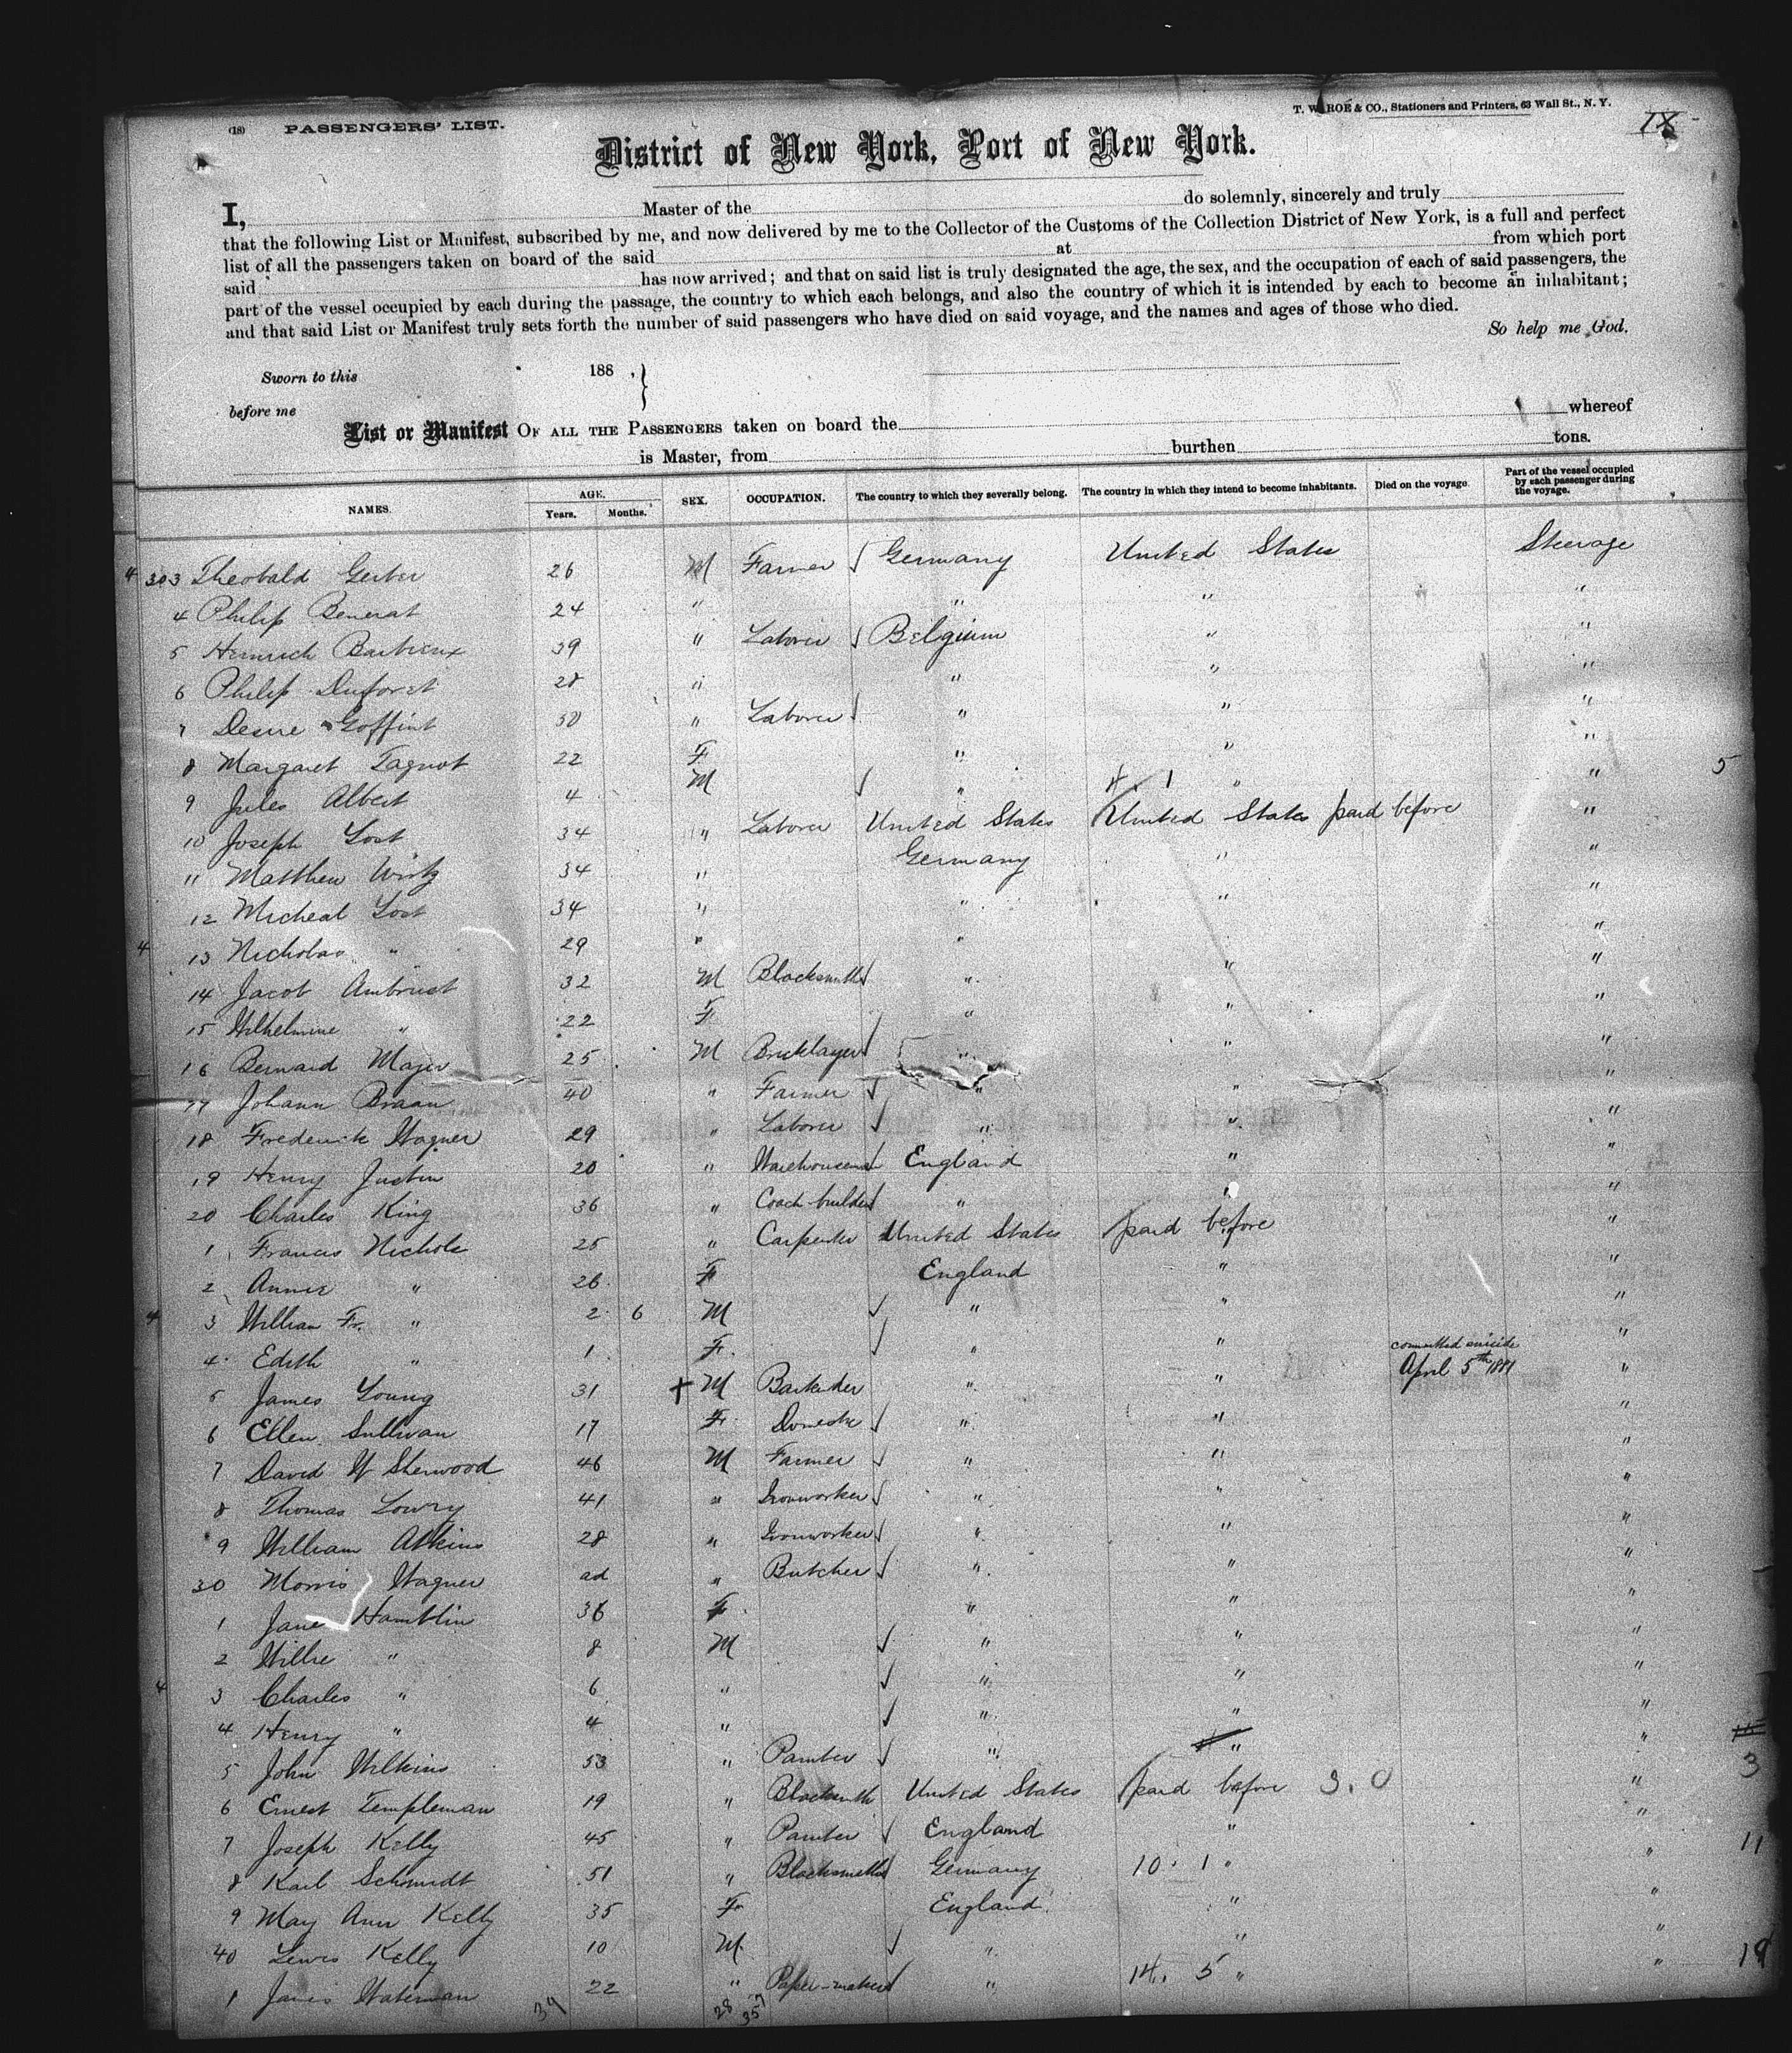 (18) PASSENGERS' LIST.
T. WAROE & CO., Stationers and Printers, 63 Wall St., N. Y.
IX
District of New York, Port of New York.
I, Master of the do solemnly, sincerely and truly
that the following List or Manifest, subscribed by me, and now delivered by me to the Collector of the Customs of the Collection District of New York, is a full and perfect
list of all the passengers taken on board of the said at from which port
said has now arrived; and that on said list is truly designated the age, the sex, and the occupation of each of said passengers, the
part of the vessel occupied by each during the passage, the country to which each belongs, and also the country of which it is intended by each to become an inhabitant;
and that said List or Manifest truly sets forth the number of said passengers who have died on said voyage, and the names and ages of those who died.
So help me God.
Sworn to this 188 ,
before me
List or Manifest OF ALL THE PASSENGERS taken on board the whereof
is Master, from burthen tons.
NAMES. AGE. Years. Months. SEX. OCCUPATION. The country to which they severally belong. The country in which they intend to become inhabitants. Died on the voyage. Part of the vessel occupied by each passenger during the voyage.
4 303 Theobald Gerber 26 M Farmer Germany United States Steerage
4 Philip Benerat 24 " " " "
5 Heinrich Barbieux 39 " Laborer Belgium " "
6 Philip Duforet 28 " " " "
7 Desire Goffint 30 " Laborer " " "
8 Margaret Tagnot 22 F " " "
9 Jules Albert 4 M " 4. 1 " " 5
10 Joseph Lost 34 " Laborer United States United States paid before "
11 Matthew Wirtz 34 " Germany " "
12 Micheal Lost 34 " " " "
4 13 Nicholas " 29 " " "
14 Jacob Ambrust 32 M Blacksmith " " "
15 Wilhelmine " 22 F " " "
16 Bernard Majer 25 M Bricklayer " " "
17 Johann Braan 40 " Farmer " " "
18 Frederick Wagner 29 " Laborer " " "
19 Henry Justin 20 " Warehouseman England " "
20 Charles King 36 " Coach-builder " " "
1 Francis Nichols 25 " Carpenter United States paid before "
2 Annie " 26 F England " "
4 3 William Fr. " 2 6 M " " "
4 Edith " 1 F. " " "
5 James Young 31 + M Bartender " " committed suicide April 5th 1881 "
6 Ellen Sullivan 17 F. Domestic " " "
7 David W Sherwood 46 M Farmer " " "
8 Thomas Lowry 41 " Ironworker " " "
9 William Atkins 28 " Ironworker " " "
30 Morris Wagner ad " Butcher " " "
1 Jane Hamblin 36 F " " "
2 Willie " 8 M " " "
4 3 Charles " 6 " " " "
4 Henry " 4 " " " "
5 John Wilkins 53 " Painter " " "
6 Ernest Templeman 19 " Blacksmith United States paid before 3. 0 " 3
7 Joseph Kelly 45 " Painter England " "
8 Karl Schmidt 51 " Blacksmith Germany 10. 1 " " 11
9 May Ann Kelly 35 F England " "
40 Lewis Kelly 10 M " " "
1 James Waterman 22 " Paper-maker " 14. 5 " " 19
39 28 357